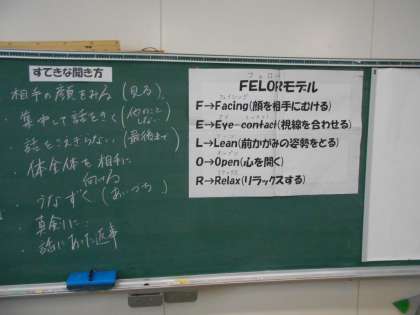 すてきな聞き方
相手の顔をみる(見る)
・集中して話をきく(他のことしない)
話をさえぎらない(最後まで)
・体全体を相手に
向ける
・うなずく(あいづち)
・真剣に
・話にあった返事
フェロー
FELORモデル
F→Facing(顔を相手にむける)
E→Eye-contact(視線を合わせる)
L→Lean(前かがみの姿勢をとる)
O→Open(心を開く)
R→Relax(リラックスする)